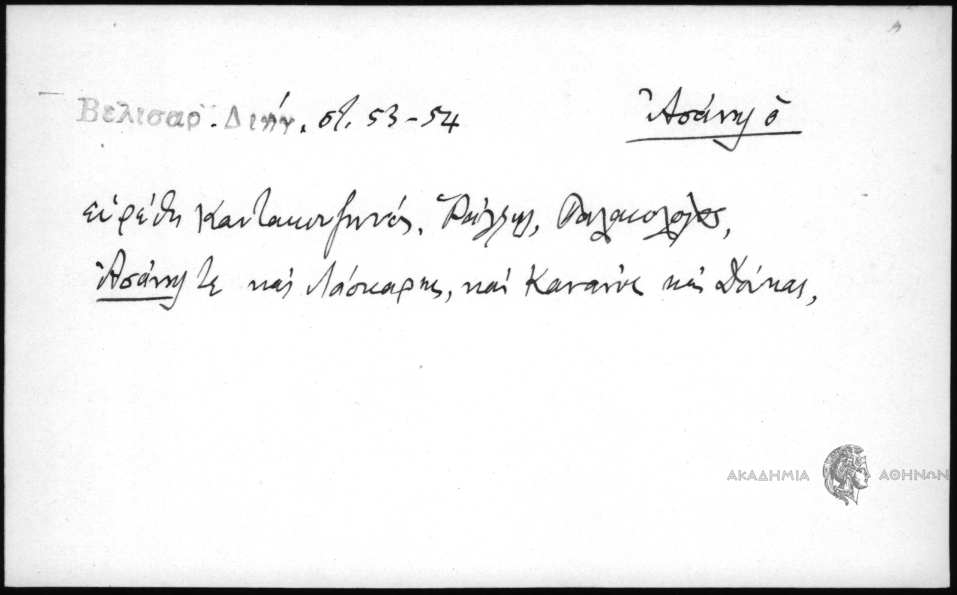 Βελισαρ. Διήγ. στ. 53-54
Ἀσάνης ὁ
εὑρέθη Καντακουζηνός, Ῥάλλης, Παλαιολόγος,
Ἀσάνης τε καὶ Λάσκαρης, καὶ Κανανὸς καὶ Δούκας,
ΑΚΑΔΗΜΙΑ ΑΘΗΝΩΝ